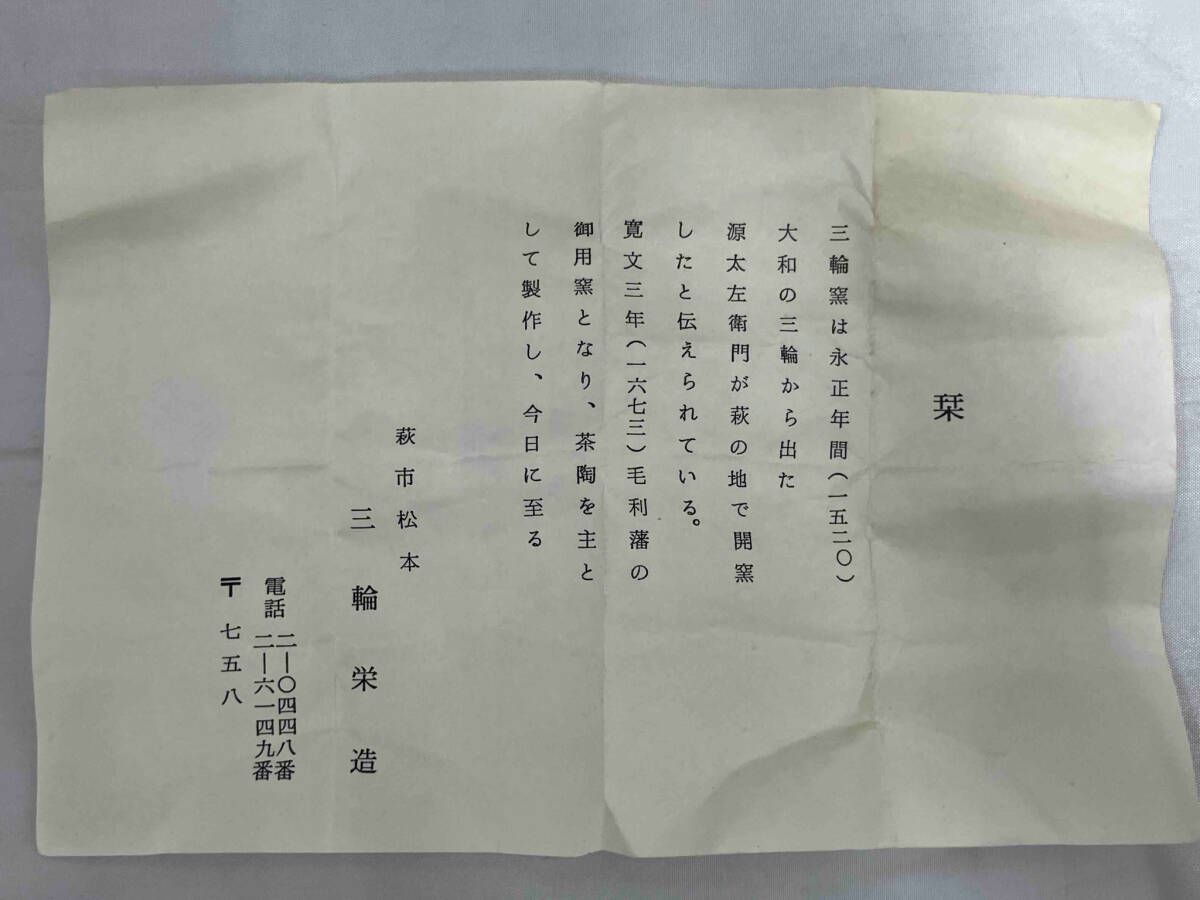 栞
三輪窯は永正年間(一五二〇)
大和の三輪から出た
源太左衛門が萩の地で開窯
したと伝えられている。
寛文三年(一六七三)毛利藩の
御用窯となり、茶陶を主と
して製作し、今日に至る
萩市松本
三輪栄造
電話 二―〇四四八番
二―六一四九番
〒七五八